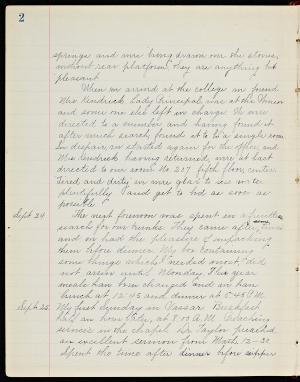 2
springs and were being drawn over the stones,
without rear platform, they are anything but
pleasant.
When we arrived at the college we found
Mrs Kendrick Lady Principal, was at the
and some one else left in charge. We were
directed to a number and having found it
after much search, found it to be a single room.
In despair, we started again for the office, and
Mrs Kendrick having returned, were at last
directed to our room No. 237 fifth floor, center.
Tired and dirty we were glad to see water
plentifully and get to bed as soon as
possible.
Sept. 24 The next forenoon was spent in a fruitless
search for our trunks. They came after
and we had the pleasure of unpacking
them before dinner. My box containing
some things which I needed most, did
not arrive until Monday. This year
meals have been changed and we have
lunch at 12:45 and dinner at 5:45 P.M.
Sept. 25. My first Sunday in Vassar. Breakfast
half an hour later, at 8:00 A.M. Preaching
service in the chapel. Dr. Taylor preached
an excellent sermon from Math. 12-30.
Spent the time after dinner before supper